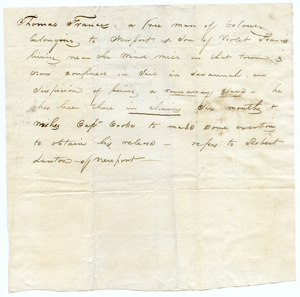 Thomas Francis. a free man of Colour
belonging to Newport & Son of Violet Francis
living near the Wind mill in that Town is
Now confined in Jail in Savannah. on
Suspicion of being a runaway Slave - he
has been there in chains Six months &
wishes Capt. Cooke to make Some exertions
to obtain his release - refers to Robert
Lawton of Newport